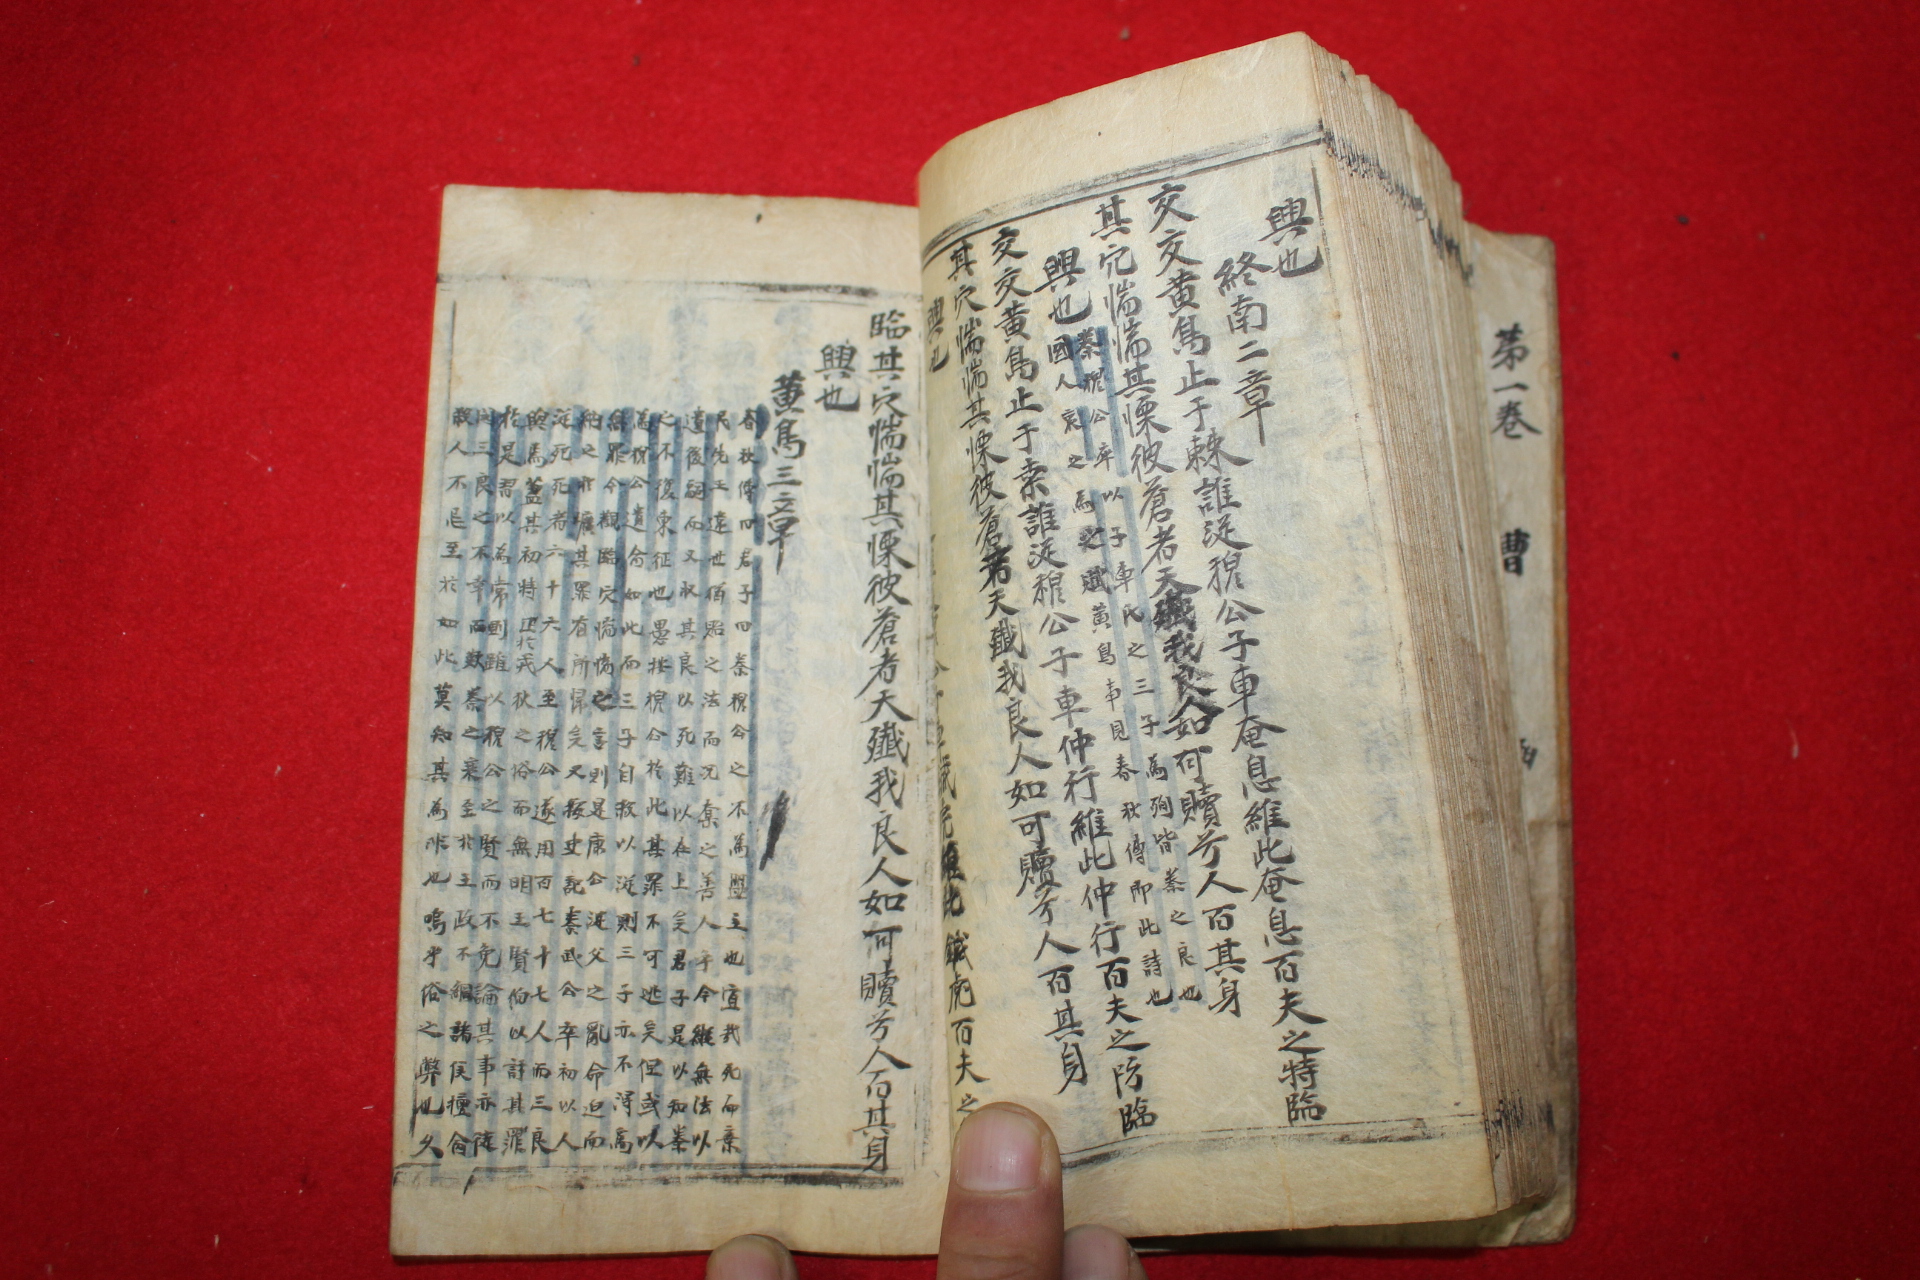 興也
終南二章
交交黄鳥止于棘誰從穆公子車奄息維此奄息百夫之特臨
其穴惴惴其慄彼蒼者天殲我良人如可贖兮人百其身
興也秦穆公卒以子車氏之三子為殉皆秦之良也
國人哀之為之賦黄鳥事見春秋傳即此詩也
交交黄鳥止于桑誰從穆公子車仲行維此仲行百夫之防臨
其穴惴惴其慄彼蒼者天殲我良人如可贖兮人百其身
興也
鍼虎維此鍼虎百夫之
臨其穴惴惴其慄彼蒼者天殲我良人如可贖兮人百其身
興也
黄鳥三章
春秋傳曰君子曰秦穆公之不為盟主也宜哉死而棄
民先王違世猶貽之法而况奪之善人乎今縱無法以
遺後嗣而又收其良以死難以在上矣君子是以知秦
之不復東征也愚按穆公於此其罪不可逃矣但或以
為穆公遺命如此而三子自殺以從則三子亦不得為
無罪今觀臨穴惴惴之言則是康公從父之亂命迫而
納之於壙其罪有所歸矣又按史記秦武公卒初以人
從死死者六十六人至穆公遂用百七十七人而三良
與焉蓋其初特出於戎狄之俗而無明王賢伯以討其罪
於是習以為常則雖以穆公之賢而不免論其事亦徒
閔三良之不幸而歎秦之衰至於王政不綱諸侯擅命
殺人不忌至於如此莫知其為非也嗚乎俗之弊也久
第一卷
曹